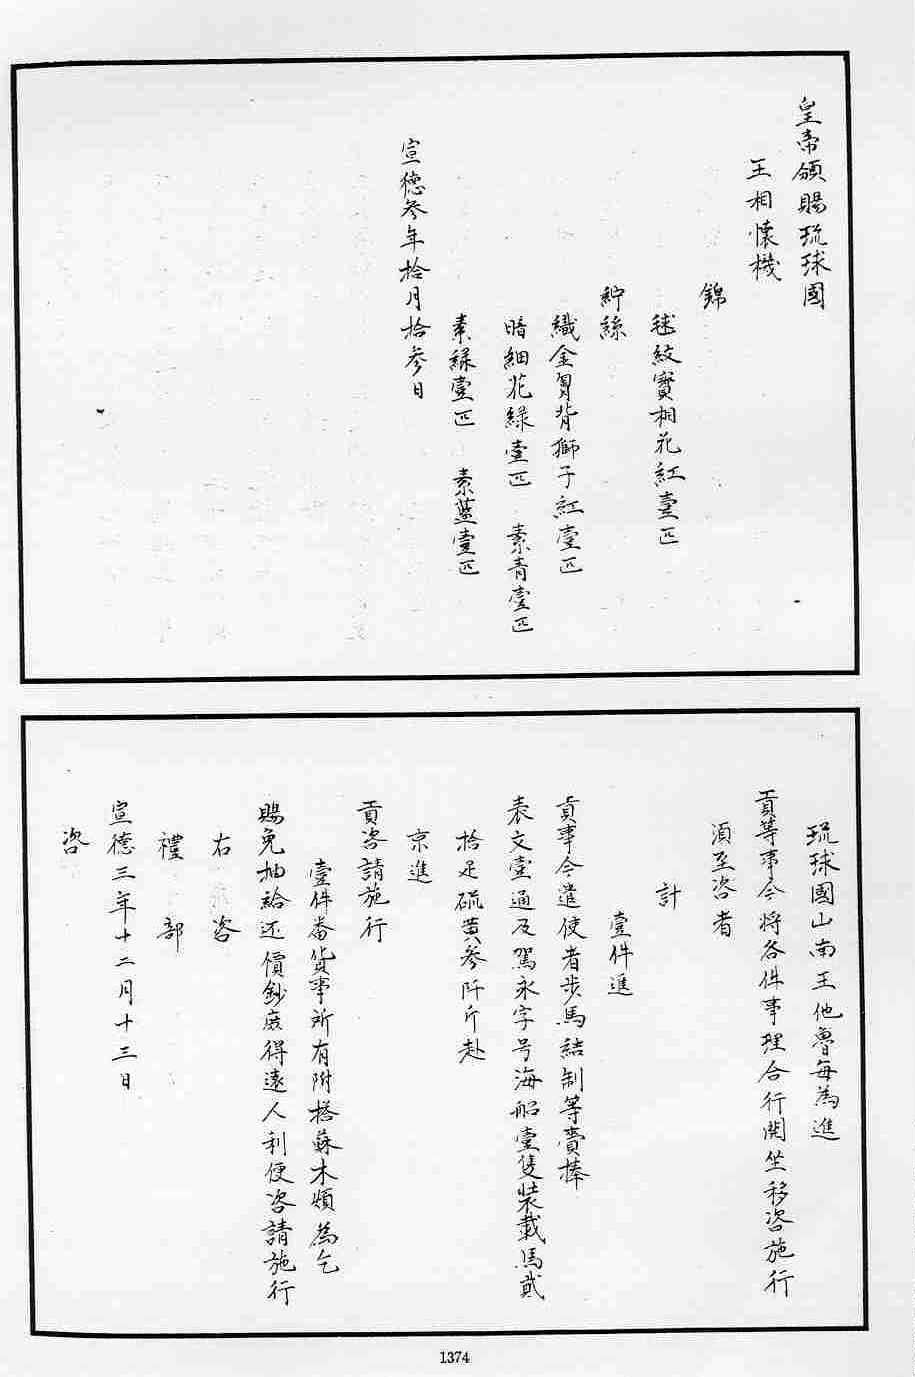 皇帝頒賜琉球國
王相懷機
錦
毬紋寳相花紅壹匹
紵絲
織金胷背獅子紅壹匹
暗細花緑壹匹 素青壹匹
素緑壹匹 素藍壹匹
宣德叄年拾月拾叄日
琉球國山南王他魯每為進
貢等事今將各件事理合行開坐移咨施行
須至咨者
計
壹件進
貢事今遣使者步馬結制等賫捧
表文壹通及駕永字号海船壹隻裝載馬貳
拾疋硫黄叄阡斤赴
京進
貢咨請施行
壹件畨貨事所有附搭蘇木煩為乞
賜免抽給还價鈔庻得遠人利便咨請施行
右咨
禮部
宣德三年十二月十三日
咨
1374